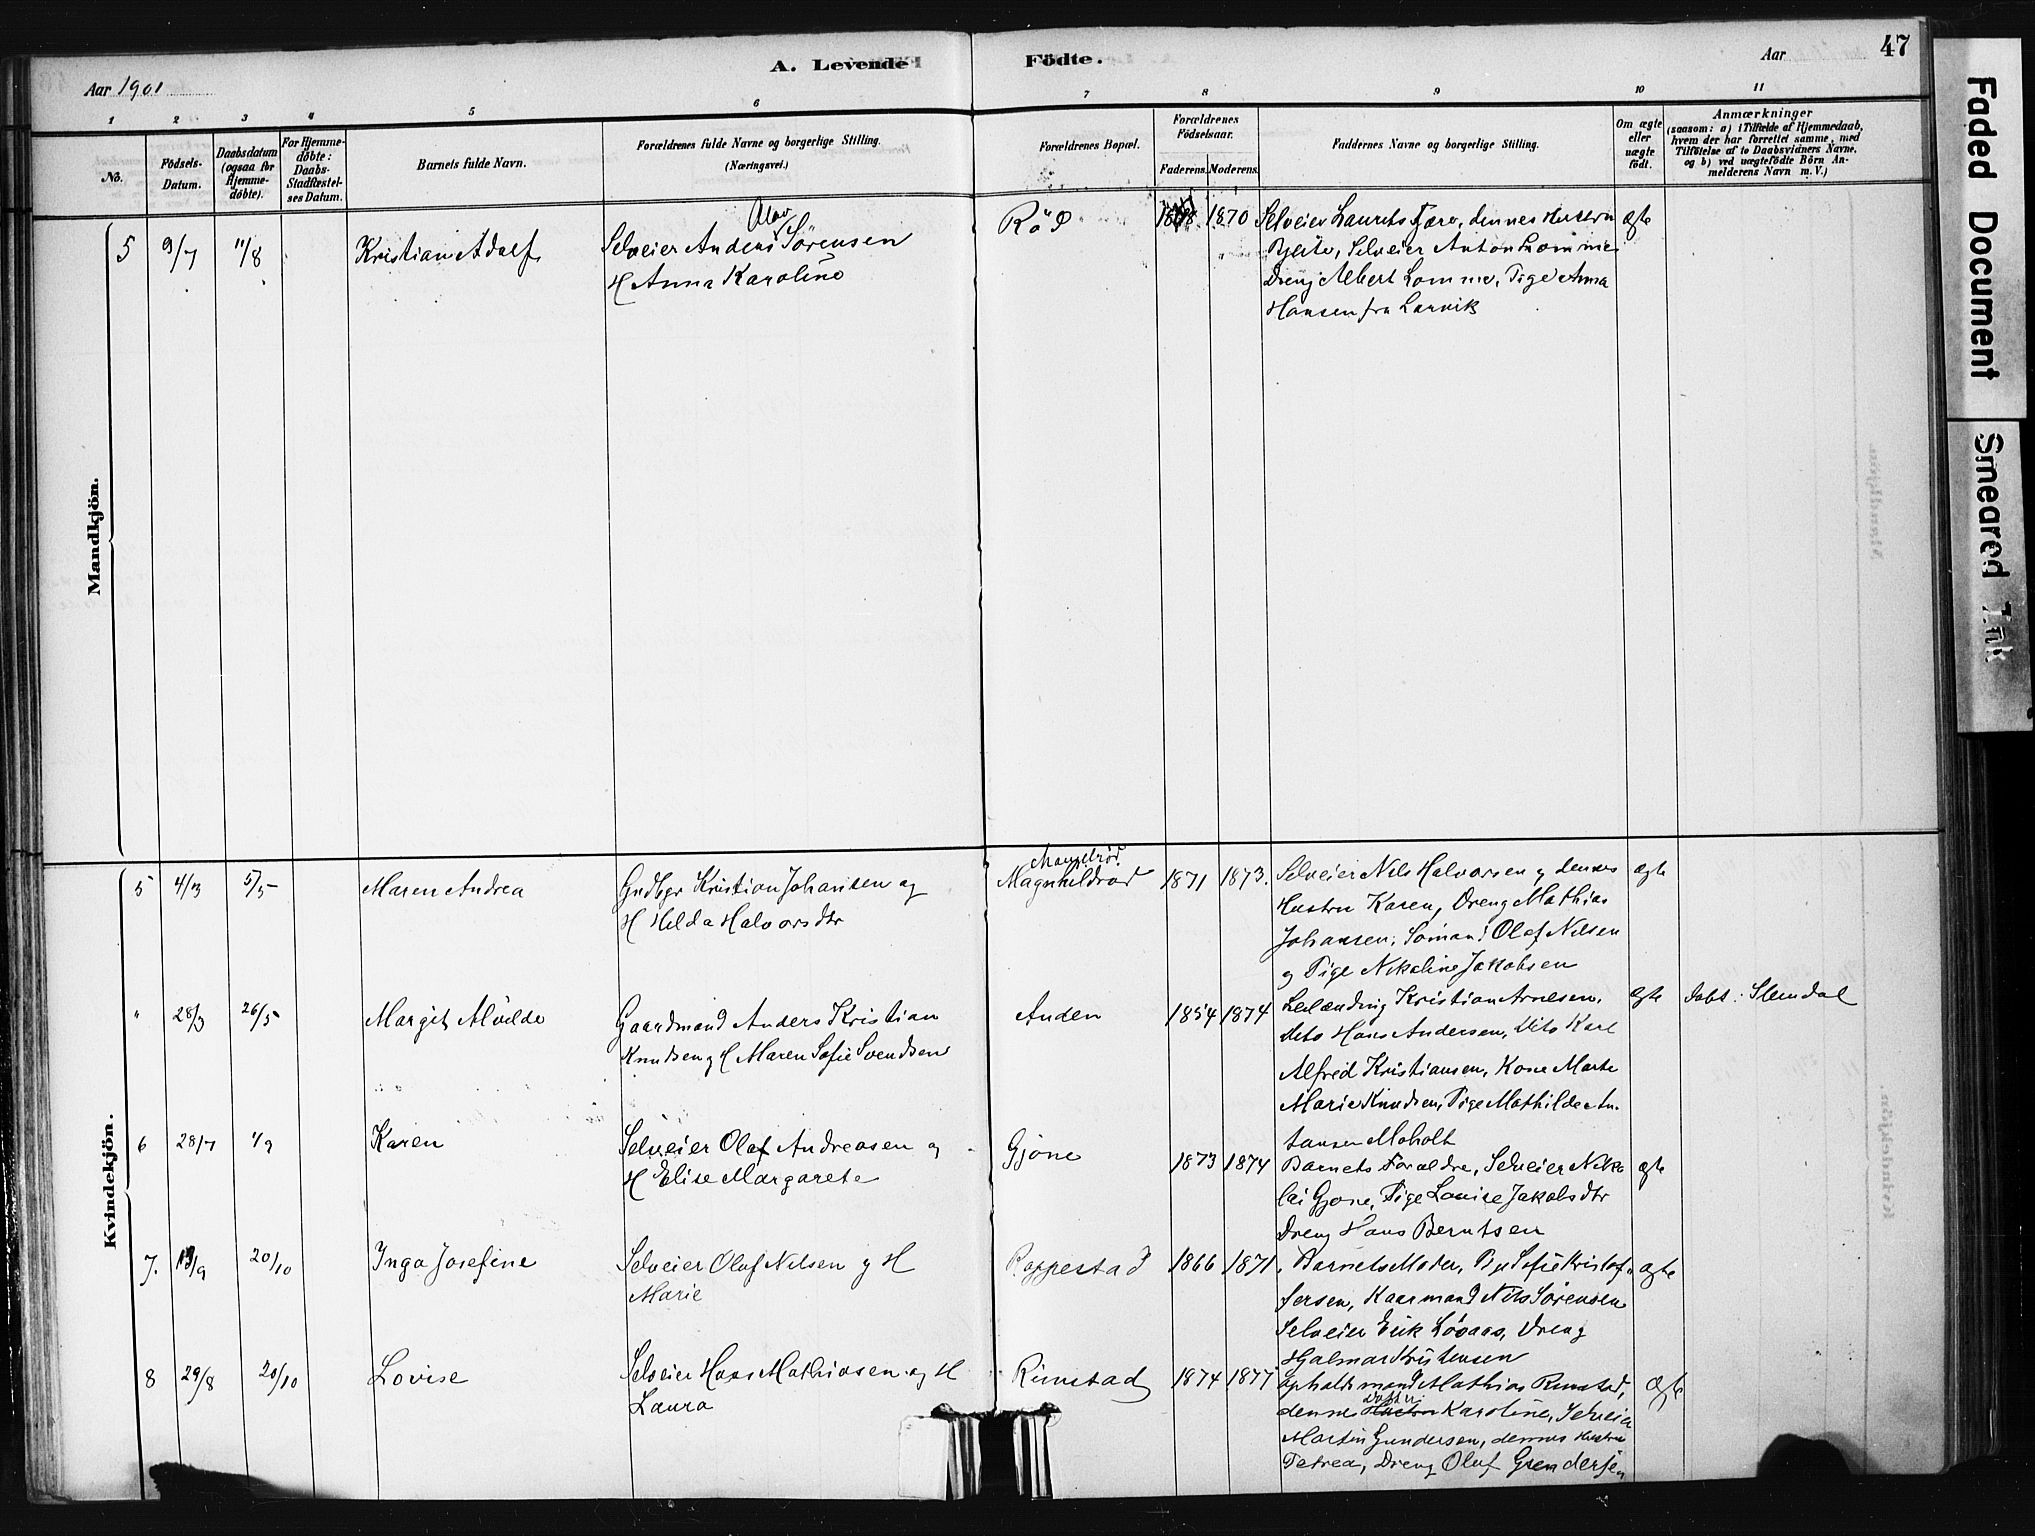 47
Aar 1901
A. Levende
Födte.
Aar
1 2 3 4 5 6 7 8 9 10 11
No.
Födsels-Datum.
Daabsdatum (ogsaa for Hjemme-döbte).
For Hjemme-döbte: Daabs-Stadfæstel-ses Datum.
Barnets fulde Navn.
Forældrenes fulde Navne og borgerlige Stilling. (Næringsvei.)
Forældrenes Bopæl.
Forældrenes Födselsaar.
Faderens. Moderens.
Faddernes Navne og borgerlige Stilling.
Om ægte eller uægte födt.
Anmærkninger
(saasom: a) i Tilfælde af Hjemmedaab, hvem der har forrettet samme, med Tilföielse af to Daabsvidners Navne. og b) ved uægtefödte Börn An-melderens Navn m.V.)
Mandkjön.
5 9/7 11/8 Kristian Adolf
Olav
Selveier Anders Sörensen
H Anna Karoline
Röd
1870
Selveier Laurits Fjære, dennes Hustru
Selveier Anton Lomme
Dreng Albert Lomme, Pige Anna
Hansen fra Larvik
ægte
Kvindekjön.
5 4/3 5/5 Maren Andrea
Grdbgr Kristian Johansen og
H Hilda Halvorsdtr
Magnhildrød
1871 1873.
Selveier Nils Halvorsen og dennes
Hustru Karen, Dreng Mathias
Johansen, Sömand Olaf Nilsen
og Pige Nikoline Jakobsen
ægte
" 28/3 26/5 Margit Mvilde
Gaardmand Anders Kristian
Knudsen og H Maren Sofie Svendsen
Anden
1854 1874
Leilænding Kristian Arnesen,
dito Hans Andersen, dito Karl
Alfred Kristiansen, Kone Marte
Marie Knudsen, Pige Mathilde An-
tonsen Moholt
ægte
döbt: Slemdal
6 28/7 1/9 Karen
Selveier Olaf Andreasen og
H Elise Margarete
Gjone
1873 1874
Barnets Forældre, Selveier Niko
lai Gjone, Pige Louise Jakobsdtr
Dreng Hans Berntsen
ægte
7. 20/10 Inga Josefine
Selveier Olaf Nilsen og H
Marie
Roppestad
1866 1871
Barnets Moder, Pige Sofie Kristof-
fersen, Kaarmand Nils Sörensen
Selveier Erik Lövaas, Dreng
Hjalmar Kristensen
ægte
8 29/8 20/10 Lovise
Selveier Hans Mathiasen og H
Laura
Rimstad
1874 1877
Opholdsmand Mathias Rimstad,
dennes Datter Karoline, Selveier
Martin Gundersen, dennes Hustru
Petrea, Dreng Olaf Gundersen
ægte
Faded Document
Smeared Ink